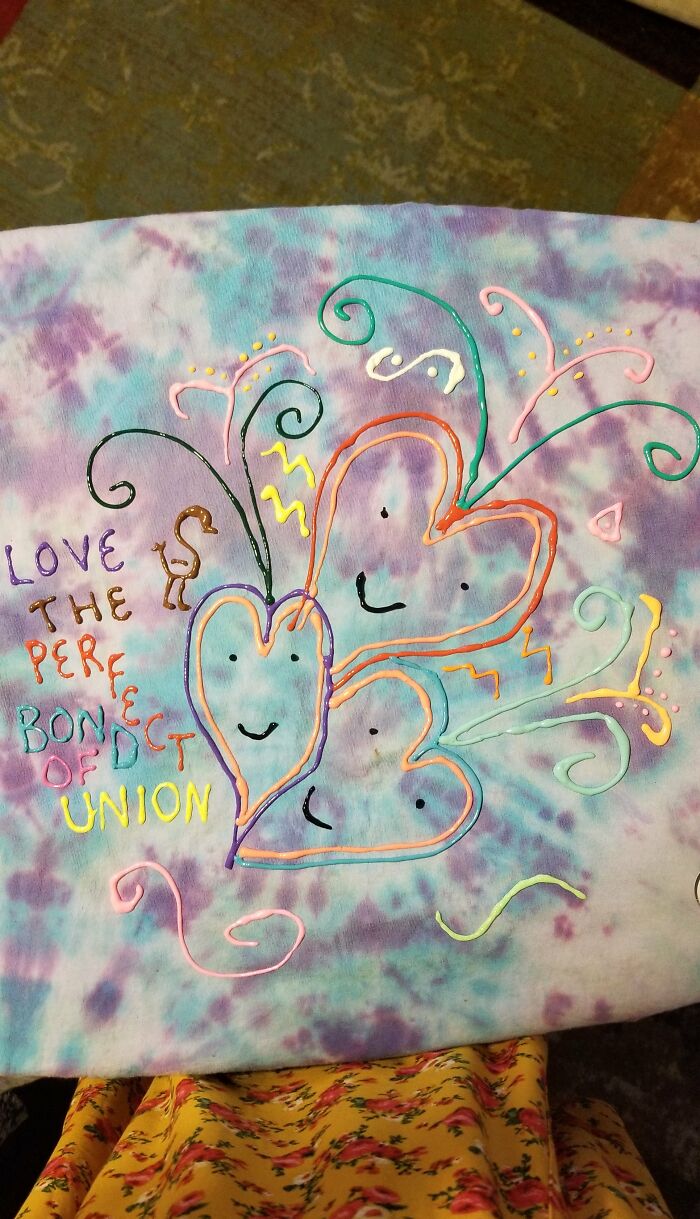 LOVE
THE
PERFECT
BOND
OF
UNION